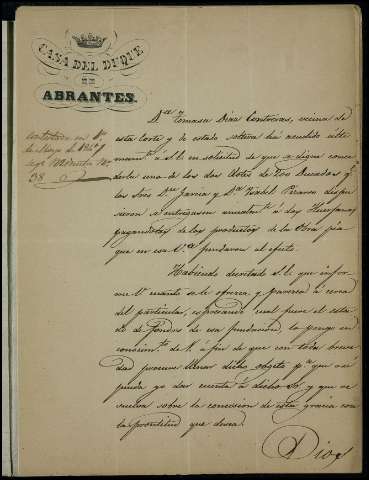 CASA DEL DUQUE
DE
ABRANTES.
Contestada en 1º
de Mayo de 1847
38
Dª Tomasa Diaz Contreras, vecina de
esta Corte y de estado soltera ha acudido
á S.E. en solicitud de que se digne conce
derle uno de los dos dotes de Dos Ducados qº
los Sres Dn Garcia y Dª Ysabel Pizarro dispu
sieron se entregasen anualmte á dos Huerfanas
pagandolos de los productos de la Obra pia
que en esa fundaron al efecto.
Habiendo decretado S.E. que infor
me V. cuanto se le ofrezca y parezca á cerca
del particular, espresando cual fuere el esta
do de fondos de esa fundacion, lo pongo en
conocimto de V. á fin de que con toda breve
dad procure llenar dicho objeto pª que asi
pueda yo dar cuenta á dicho Sr y que se
resuelva sobre la concesion de esta gracia con
la prontitud que desea.
Dios